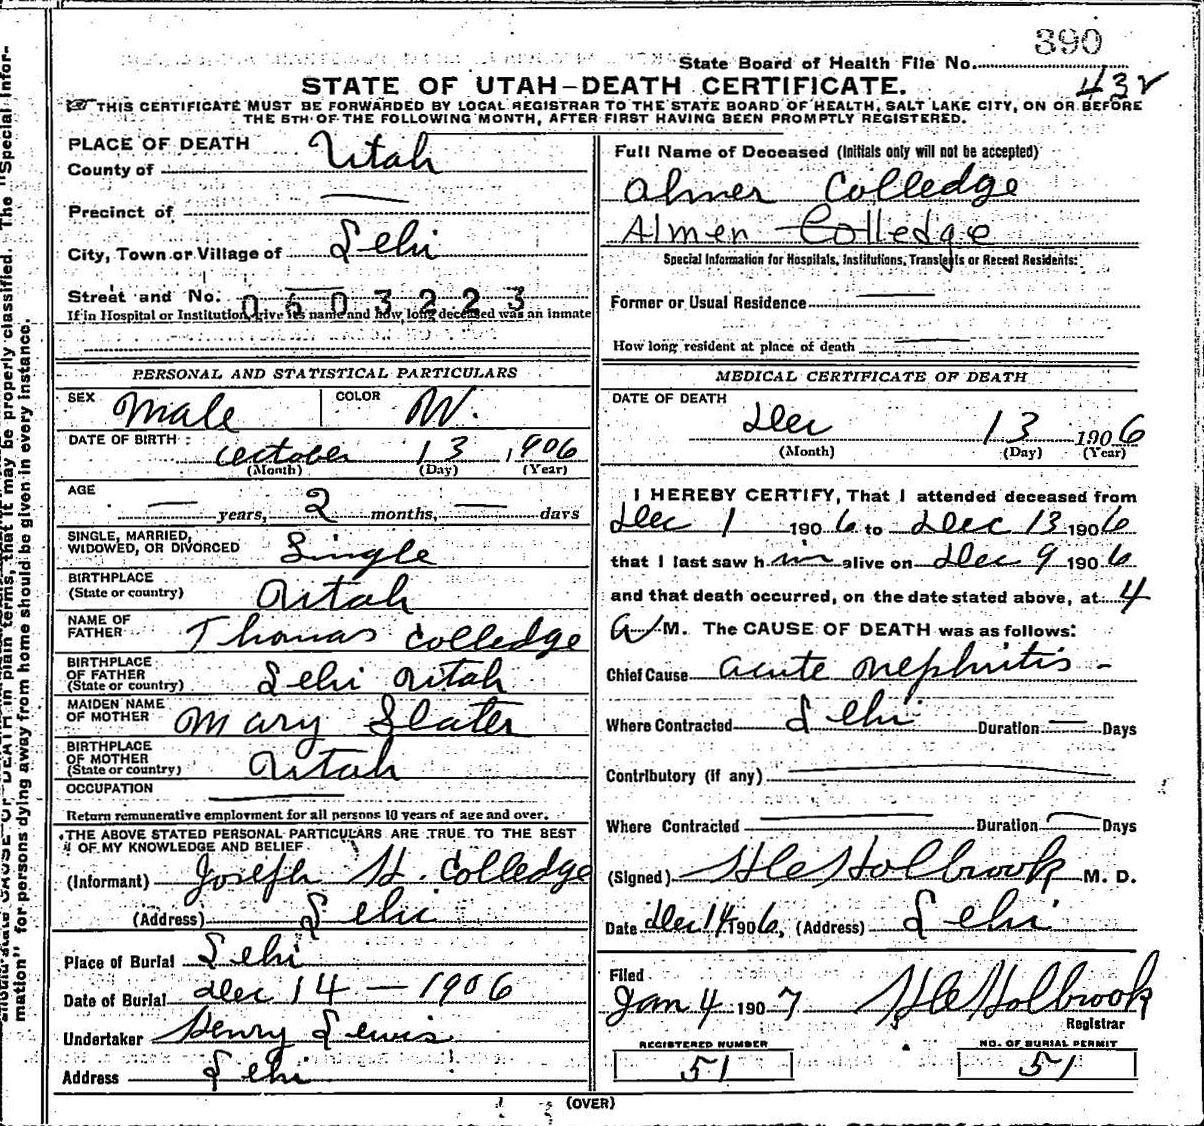 390
State Board of Health File No.
432
STATE OF UTAH—DEATH CERTIFICATE.
THIS CERTIFICATE MUST BE FORWARDED BY LOCAL REGISTRAR TO THE STATE BOARD OF HEALTH, SALT LAKE CITY, ON OR BEFORE
THE 5TH OF THE FOLLOWING MONTH, AFTER FIRST HAVING BEEN PROMPTLY REGISTERED.
PLACE OF DEATH
County of Utah
Precinct of —
City, Town or Village of Lehi
Street and No. —
0603223
If in Hospital or Institution, give its name and how long deceased was an inmate
PERSONAL AND STATISTICAL PARTICULARS
SEX Male COLOR W.
DATE OF BIRTH: October 13, 1906
(Month) (Day) (Year)
AGE
— years, 2 months, — days
SINGLE, MARRIED,
WIDOWED, OR DIVORCED Single
BIRTHPLACE
(State or country) Utah
NAME OF
FATHER Thomas Colledge
BIRTHPLACE
OF FATHER
(State or country) Lehi Utah
MAIDEN NAME
OF MOTHER Mary Slater
BIRTHPLACE
OF MOTHER
(State or country) Utah
OCCUPATION —
Return remunerative employment for all persons 10 years of age and over.
THE ABOVE STATED PERSONAL PARTICULARS ARE TRUE TO THE BEST
OF MY KNOWLEDGE AND BELIEF
(Informant) Joseph H. Colledge
(Address) Lehi
Place of Burial Lehi
Date of Burial Dec 14 — 1906
Undertaker Henry Lewis
Address Lehi
Full Name of Deceased (Initials only will not be accepted)
Almer Colledge
Almen Colledge
Special Information for Hospitals, Institutions, Transients or Recent Residents:
Former or Usual Residence —
How long resident at place of death —
MEDICAL CERTIFICATE OF DEATH
DATE OF DEATH
Dec 13 1906
(Month) (Day) (Year)
I HEREBY CERTIFY, That I attended deceased from
Dec 1 1906 to Dec 13 1906
that I last saw him alive on Dec 9 1906
and that death occurred, on the date stated above, at 4
A M. The CAUSE OF DEATH was as follows:
Chief Cause acute nephritis —
Where Contracted Lehi Duration — Days
Contributory (if any) —
Where Contracted — Duration — Days
(Signed) Holbrook M. D.
Date Dec 14 1906, (Address) Lehi
Filed
Jan 4 1907 Holbrook
Registrar
REGISTERED NUMBER
51
NO. OF BURIAL PERMIT
51
(OVER)
DEATH in plain terms, that it may be properly classified. The "Special Infor-
mation" for persons dying away from home should be given in every instance.